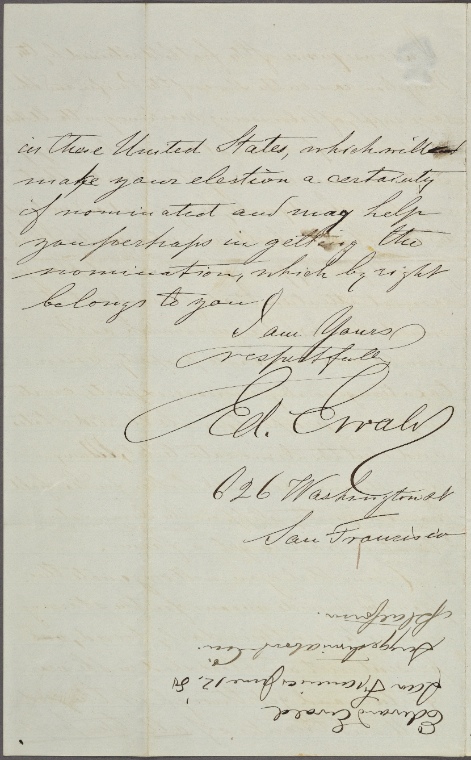 in those United States, which will
make your election a certainty
if nominated and may help
you perhaps in getting the
nomination, which by right
belongs to you
I am Yours
respectfully
Ed. Ewald
626 Washington st
San Francisco
Edward Ewald
San Francisco June 12, 84
Suggestions
platform.